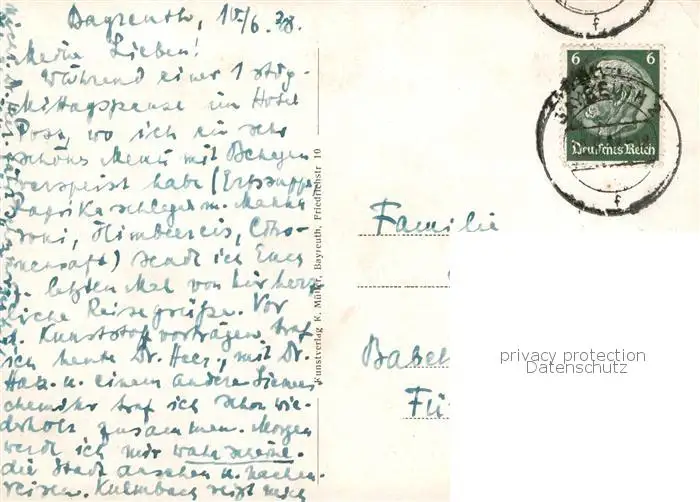 Bayreuth, 15/6. 38.
Meine Lieben!
Während einer 1 stdg.
Mittagspause im Hotel
Post, wo ich ein sehr
schönes Menü mit Behagen
verspeist habe (Erbssuppe
Paprikaschlegel m. Makka
roni, Himbeereis, Citro-
nensaft) send ich Euch
z. letzten Mal von hier herz
liche Reisegrüße. Vor
d. Kunststoffvorträgen traf
ich heute Dr. Hees, mit Dr.
u. einem andern Siemens
chemiker traf ich schon wie-
derholt zusammen. Morgen
werd ich mir wahrscheinl.
die Stadt ansehen u. nachm.
reisen. Kulmbach reizt mich
Kunstverlag K. Müller, Bayreuth, Friedrichstr 10
6 6
Deutsches Reich
f
f
Familie
Babel
Fü
privacy protection
Datenschutz